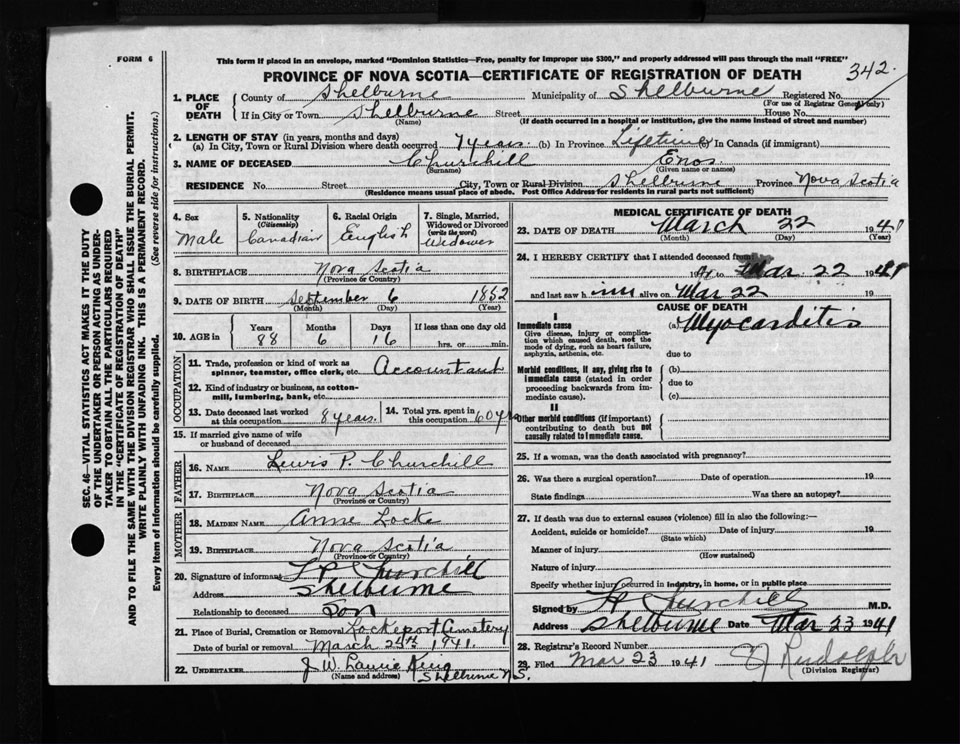 FORM 6
This form if placed in an envelope, marked "Dominion Statistics—Free, penalty for improper use $300," and properly addressed will pass through the mail "FREE"
PROVINCE OF NOVA SCOTIA—CERTIFICATE OF REGISTRATION OF DEATH
342.
1. PLACE OF DEATH
County of Shelburne Municipality of Shelburne Registered No.
(For use of Registrar General only)
If in City or Town Shelburne Street House No.
(Name) (If death occurred in a hospital or institution, give the name instead of street and number)
2. LENGTH OF STAY (in years, months and days)
(a) In City, Town or Rural Division where death occurred 7 years. (b) In Province Lifetime (c) In Canada (if immigrant)
3. NAME OF DECEASED Churchill Enos.
(Surname) (Given name or names)
RESIDENCE No. Street City, Town or Rural Division Shelburne Province Nova Scotia
(Residence means usual place of abode. Post Office Address for residents in rural parts not sufficient)
4. Sex
Male
5. Nationality
(Citizenship)
Canadian
6. Racial Origin
English
7. Single, Married, Widowed or Divorced
(write the word)
Widower
8. BIRTHPLACE Nova Scotia
(Province or Country)
9. DATE OF BIRTH September 6 1852
(Month) (Day) (Year)
10. AGE in Years Months Days If less than one day old
88 6 16 hrs. or min.
OCCUPATION
11. Trade, profession or kind of work as spinner, teamster, office clerk, etc. Accountant
12. Kind of industry or business, as cotton-mill, lumbering, bank, etc.
13. Date deceased last worked at this occupation 8 years. 14. Total yrs. spent in this occupation 60 yrs
15. If married give name of wife or husband of deceased
FATHER
16. NAME Lewis P. Churchill
17. BIRTHPLACE Nova Scotia
(Province or Country)
MOTHER
18. MAIDEN NAME Anne Locke
19. BIRTHPLACE Nova Scotia
(Province or Country)
20. Signature of informant L P Churchill
Address Shelburne
Relationship to deceased Son
21. Place of Burial, Cremation or Removal Lockeport Cemetery
Date of burial or removal March 25th 1941.
22. UNDERTAKER J. W. Laurie King
(Name and address) Shelburne N.S.
MEDICAL CERTIFICATE OF DEATH
23. DATE OF DEATH March 22 1941
(Month) (Day) (Year)
24. I HEREBY CERTIFY that I attended deceased from
1941 to Mar. 22 1941
and last saw him alive on Mar 22 19
CAUSE OF DEATH
I
Immediate cause
Give disease, injury or complication which caused death, not the mode of dying, such as heart failure, asphyxia, asthenia, etc.
(a) Myocarditis
due to
Morbid conditions, if any, giving rise to immediate cause (stated in order proceeding backwards from immediate cause).
(b)
due to
(c)
II
Other morbid conditions (if important) contributing to death but not causally related to immediate cause.
25. If a woman, was the death associated with pregnancy?
26. Was there a surgical operation? Date of operation 19
State findings Was there an autopsy?
27. If death was due to external causes (violence) fill in also the following:—
Accident, suicide or homicide? Date of injury 19
(State which)
Manner of injury
(How sustained)
Nature of injury
Specify whether injury occurred in industry, in home, or in public place
Signed by Churchill M.D.
Address Shelburne Date Mar 23 1941
28. Registrar's Record Number
29. Filed Mar 23 1941 Rudolph
(Division Registrar)
SEC. 46—VITAL STATISTICS ACT MAKES IT THE DUTY
OF THE UNDERTAKER OR PERSON ACTING AS UNDER-
TAKER TO OBTAIN ALL THE PARTICULARS REQUIRED
IN THE "CERTIFICATE OF REGISTRATION OF DEATH"
AND TO FILE THE SAME WITH THE DIVISION REGISTRAR WHO SHALL ISSUE THE BURIAL PERMIT.
WRITE PLAINLY WITH UNFADING INK. THIS IS A PERMANENT RECORD.
Every item of information should be carefully supplied. (See reverse side for instructions.)